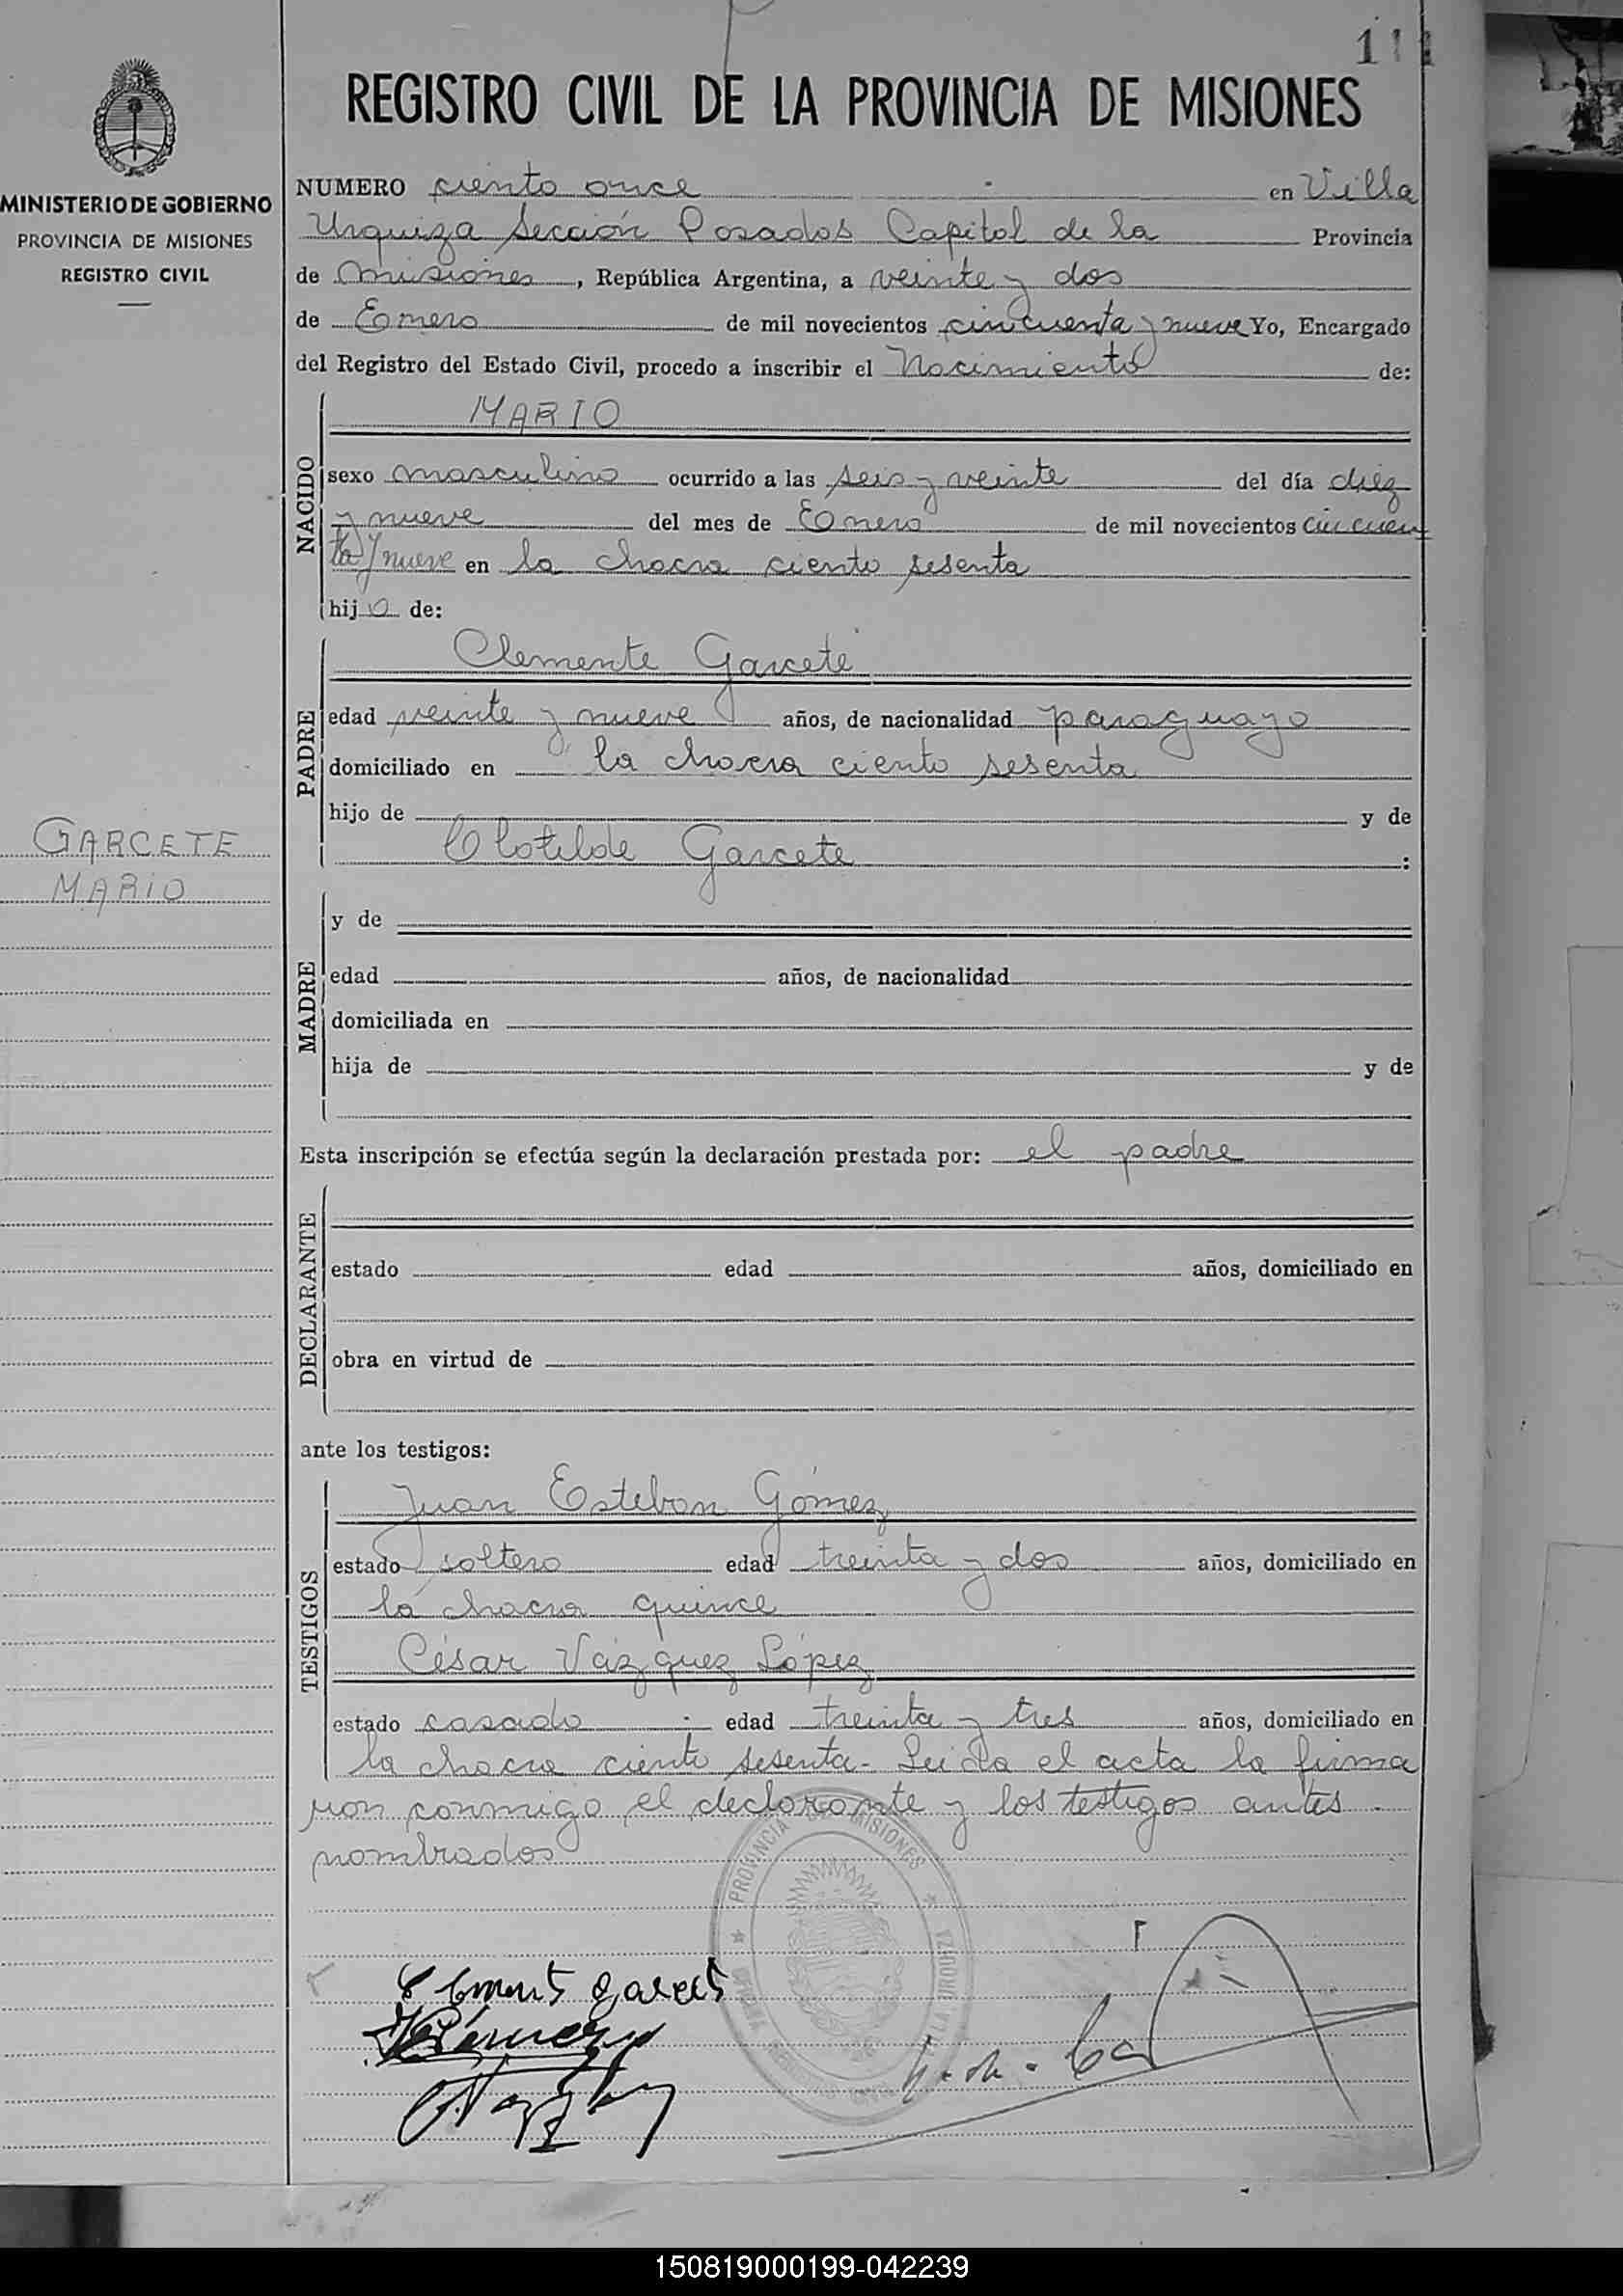 111
REGISTRO CIVIL DE LA PROVINCIA DE MISIONES
MINISTERIO DE GOBIERNO
PROVINCIA DE MISIONES
REGISTRO CIVIL
NUMERO ciento once en Villa
Urquiza Sección Posadas Capital de la Provincia
de Misiones, República Argentina, a veinte y dos
de Enero de mil novecientos cincuenta y nueve Yo, Encargado
del Registro del Estado Civil, procedo a inscribir el Nacimiento de:
NACIDO
MARIO
sexo masculino ocurrido a las seis y veinte del día diez
y nueve del mes de Enero de mil novecientos cincuen
ta y nueve en la chacra ciento sesenta
hijo de:
PADRE
Clemente Garcete
edad veinte y nueve años, de nacionalidad paraguayo
domiciliado en la chacra ciento sesenta
hijo de y de
Clotilde Garcete :
GARCETE
MARIO
MADRE
y de
edad años, de nacionalidad
domiciliada en
hija de y de
Esta inscripción se efectúa según la declaración prestada por: el padre
DECLARANTE
estado edad años, domiciliado en
obra en virtud de
ante los testigos:
TESTIGOS
Juan Esteban Gómez
estado soltero edad treinta y dos años, domiciliado en
la chacra quince
César Vázquez López
estado casado edad treinta y tres años, domiciliado en
la chacra ciento sesenta - Leida el acta la firma
ron conmigo el declarante y los testigos antes
nombrados
PROVINCIA DE MISIONES
150819000199-042239